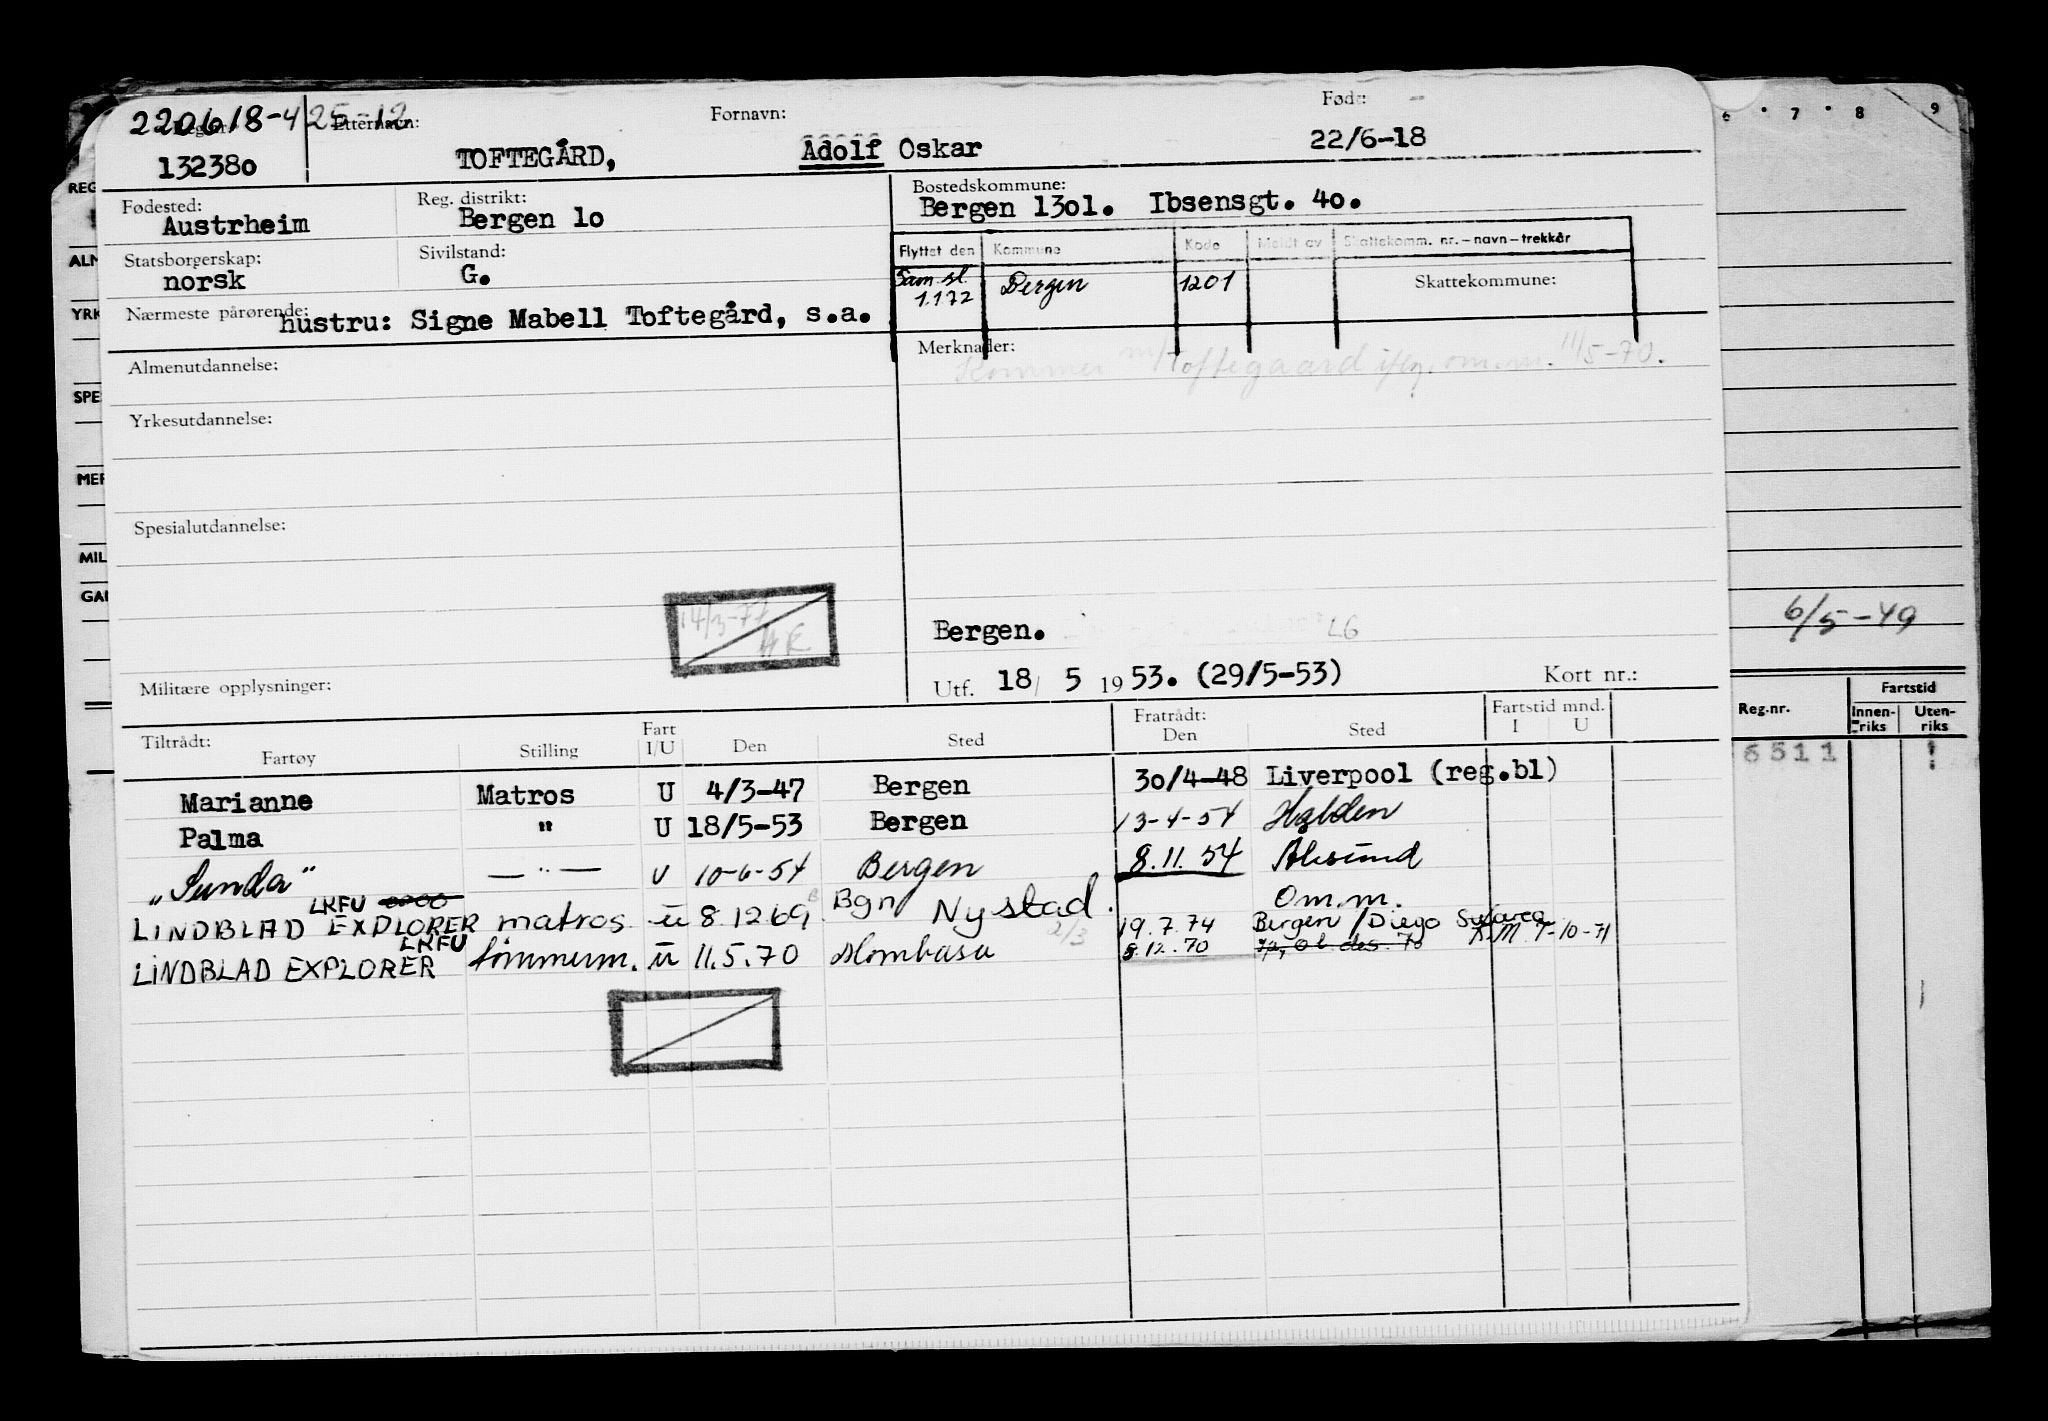 220618-425-12
Etternavn:
Fornavn:
Født:
132380
TOFTEGÅRD,
Adolf Oskar
22/6-18
Fødested:
Austrheim
Reg. distrikt:
Bergen 1o
Bostedskommune:
Bergen 13o1. Ibsensgt. 4o.
Statsborgerskap:
norsk
Sivilstand:
G.
Flyttet den
Kommune
Kode
Meldt av
Skattekomm. nr. – navn – trekkår
Sam. sl.
1.1.72
Bergen
1201
Skattekommune:
Nærmeste pårørende:
hustru: Signe Mabell Toftegård, s.a.
Almenutdannelse:
Merknader:
Kommer m/Toftegaard iflg. om.m. 11/5-70.
Yrkesutdannelse:
Spesialutdannelse:
Bergen.
LG
Militære opplysninger:
Utf. 18/ 5 19 53. (29/5-53)
Kort nr.:
Tiltrådt:
Fartøy
Stilling
Fart
I/U
Den
Sted
Fratrådt:
Den
Sted
Fartstid mnd.
I
U
Marianne Matros U 4/3-47 Bergen 3o/4-48 Liverpool (reg.bl)
Palma " U 18/5-53 Bergen 13-4-54 Halden
"Sunda" — " — U 10-6-54 Bergen 8.11.54 Ålesund
LKFU
Om.m.
LINDBLAD EXPLORER matros U 8.12.69 Bgn Nystad. 19.7.74 Bergen / Diego
2/3
LKFU
LINDBLAD EXPLORER tømmerm. U 11.5.70 Mombasa 8.12.70
REG
ALM
YRK
SPE
MER
MIL
GAR
6 7 8 9
6/5-49
Reg.nr.
Fartstid
Innen-
riks
Uten-
riks
6511